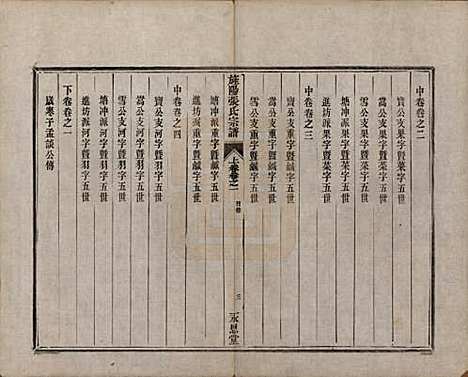 中卷卷之二
寶公支果字暨菜字五世
嵩公支果字暨菜字五世
雪公支果字暨菜字五世
塘冲派果字暨菜字五世
進坊派果字暨菜字五世
中卷卷之三
寶公支重字暨鹹字五世
嵩公支重字暨鹹字五世
雪公支重字暨鹹字五世
旌陽張氏宗譜
上卷卷之一
目錄
三
永思堂
塘冲派重字暨鹹字五世
進坊派重字暨鹹字五世
中卷卷之四
寶公支河字暨羽字五世
嵩公支河字暨羽字五世
雪公支河字暨羽字五世
塘冲派河字暨羽字五世
進坊派河字暨羽字五世
下卷卷之一
歲寒子孟談公傳